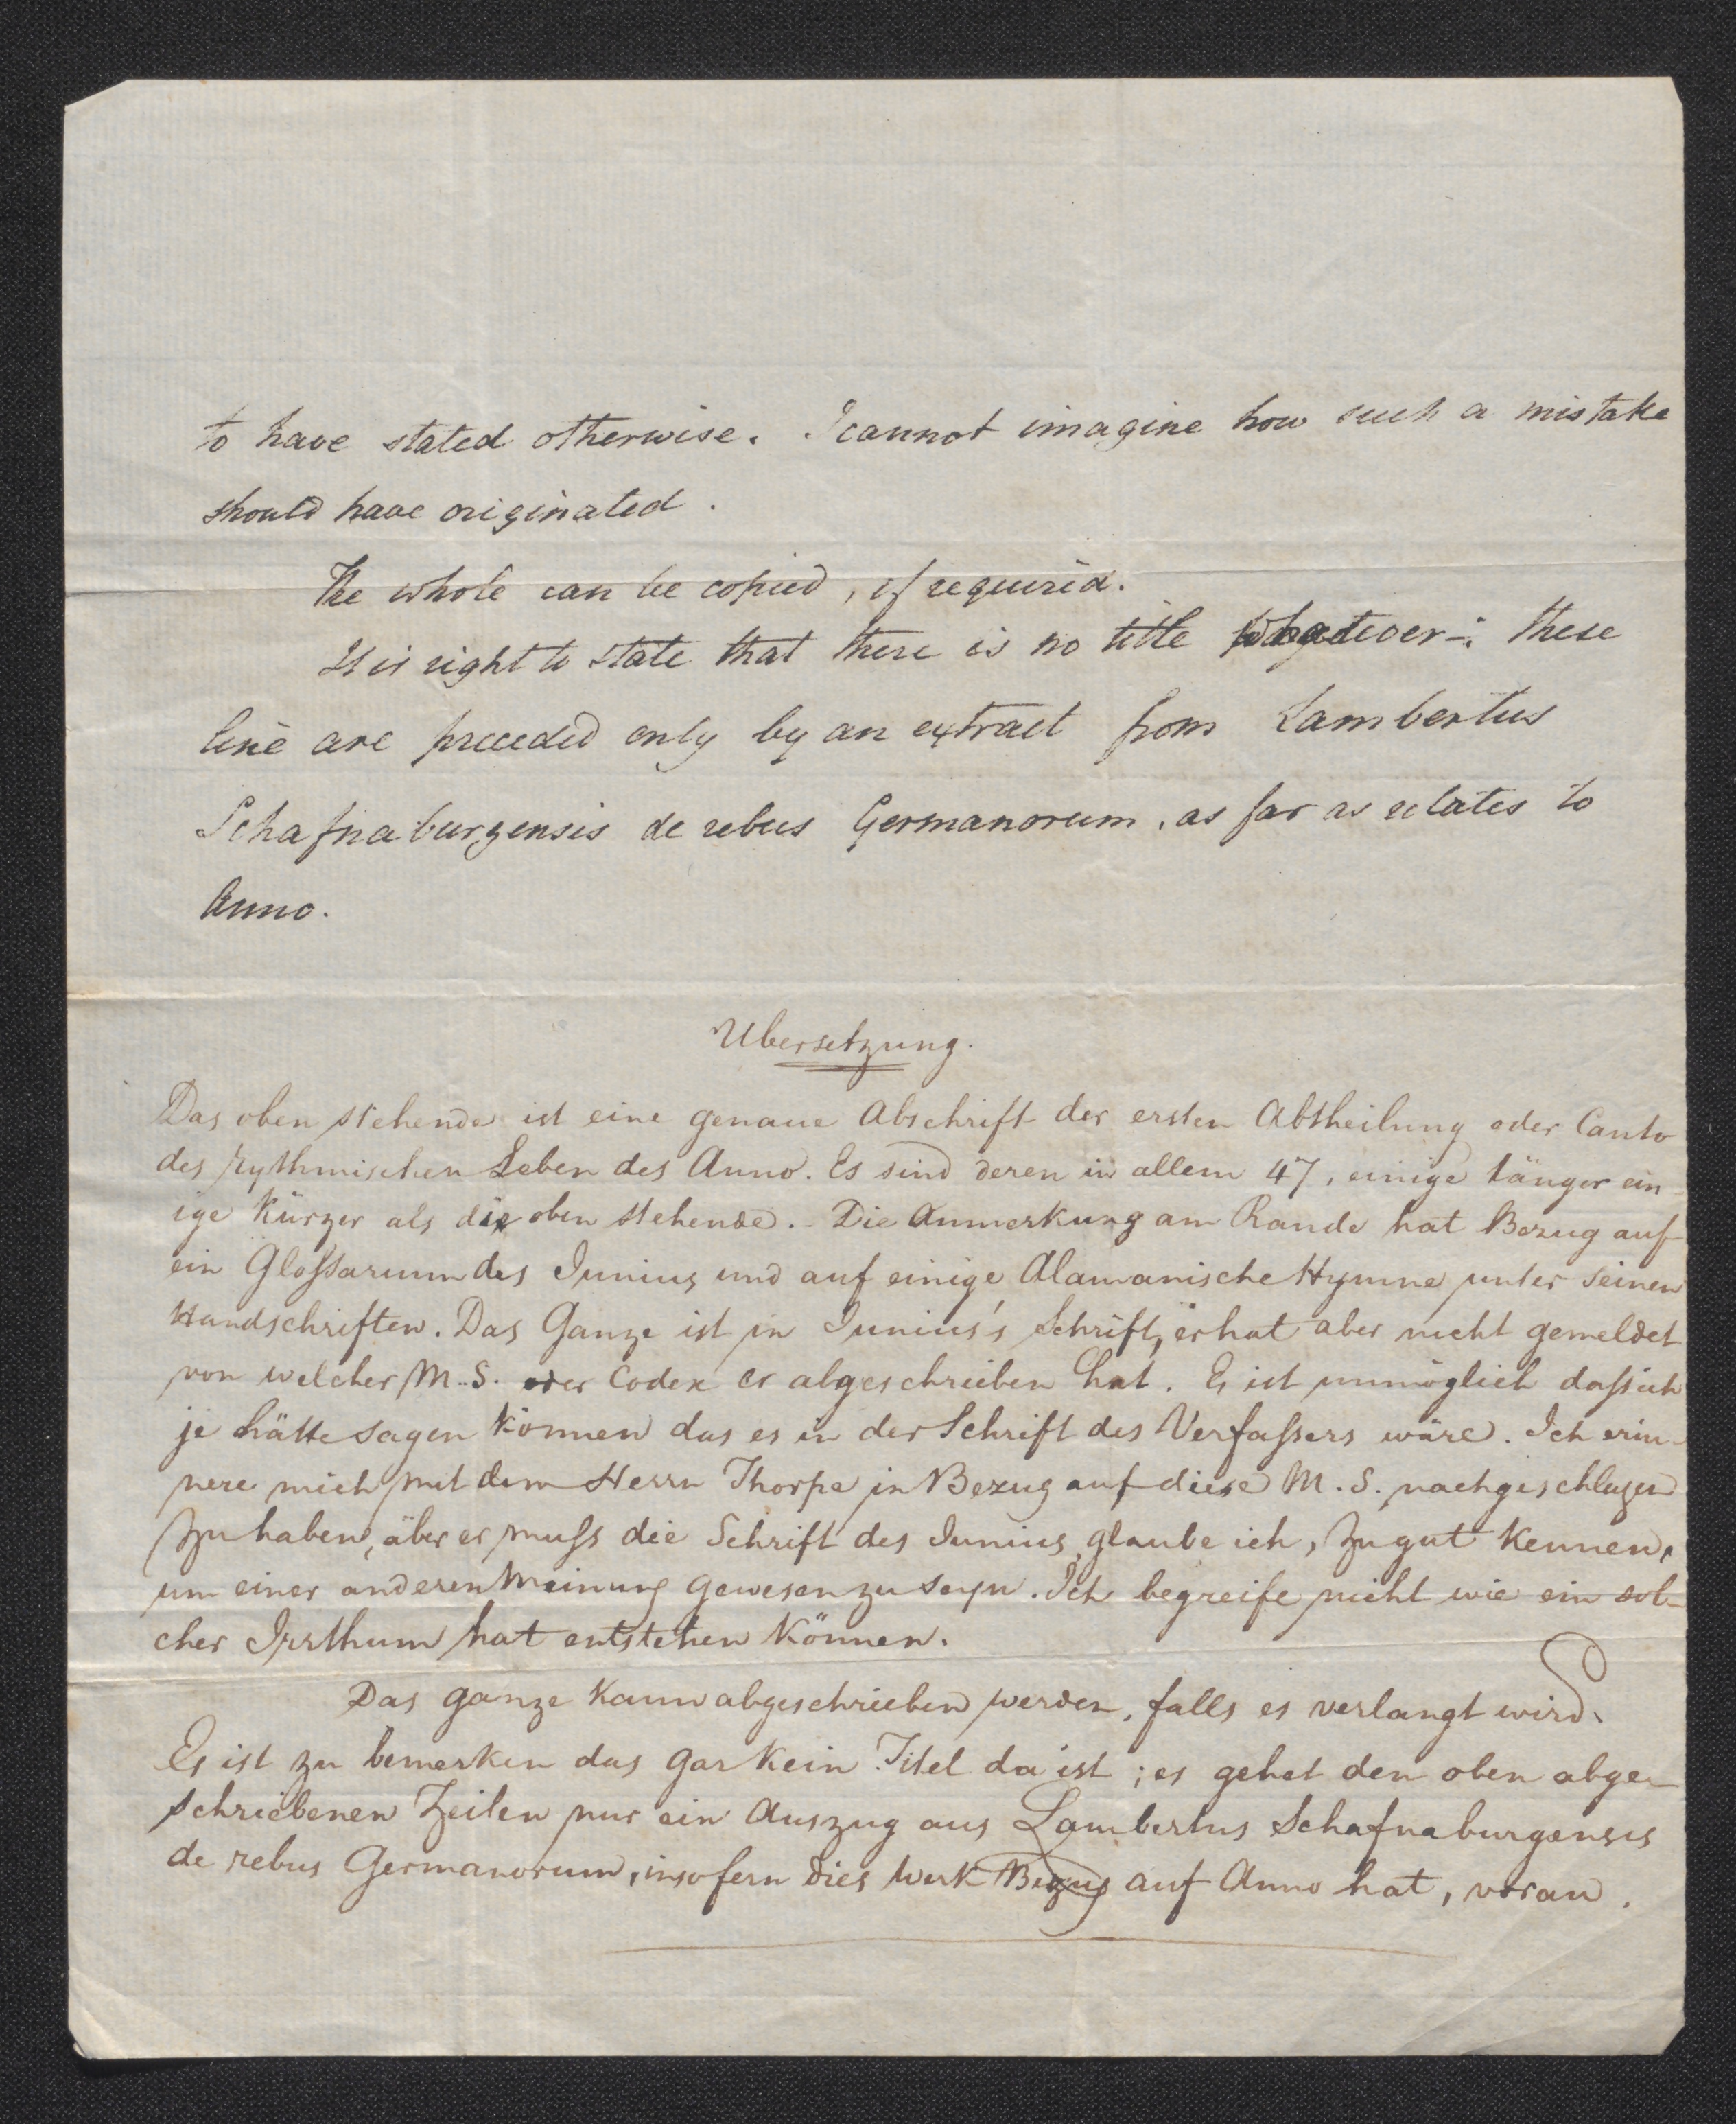 to have stated otherwise. I cannot imagine how such a mistake
should have originated.
The whole can be copied, if required.
It is right to state that there is no title whatever: these
line are preceded only by an extract from Lambertus
Schafnaburgensis de rebus Germanorum, as far as relates to
Anno.
Ubersetzung.
Das oben stehende ist eine genaue Abschrift der ersten Abtheilung oder Canto
des rythmischen Leben des Anno. Es sind deren in allem 47, einige länger ein-
ige kürzer als die oben stehende. Die Anmerkung am Rande hat Bezug auf
ein Gloßarium des Junius und auf einige Alamanische Hymne unter seinen
Handschriften. Das Ganze ist in Junius's Schrift, er hat aber nicht gemeldet
von welcher M.S. oder Codex er abgeschrieben hat. Es ist unmöglich daß ich
je hätte sagen können das es in der Schrift des Verfaßers wäre. Ich erin-
nere mich mit dem Herrn Thorpe in Bezug auf diese M.S. nachgeschlagen
zu haben, aber er muß die Schrift des Junius, glaube ich, zu gut kennen,
um einer anderen Meinung gewesen zu seyn. Ich begreife nicht wie ein sol-
cher Irrthum hat entstehen können.
Das ganze kann abgeschrieben werden, falls es verlangt wird.
Es ist zu bemerken das gar kein Titel da ist; es gehet den oben abge-
schriebenen Zeilen nur ein Auszug aus Lambertus Schafnaburgensis
de rebus Germanorum, insofern dies Werk Bezug auf Anno hat, voran.